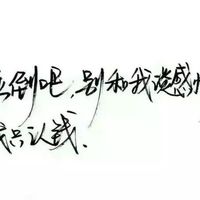 倒吧,别和我谈感
只认钱.